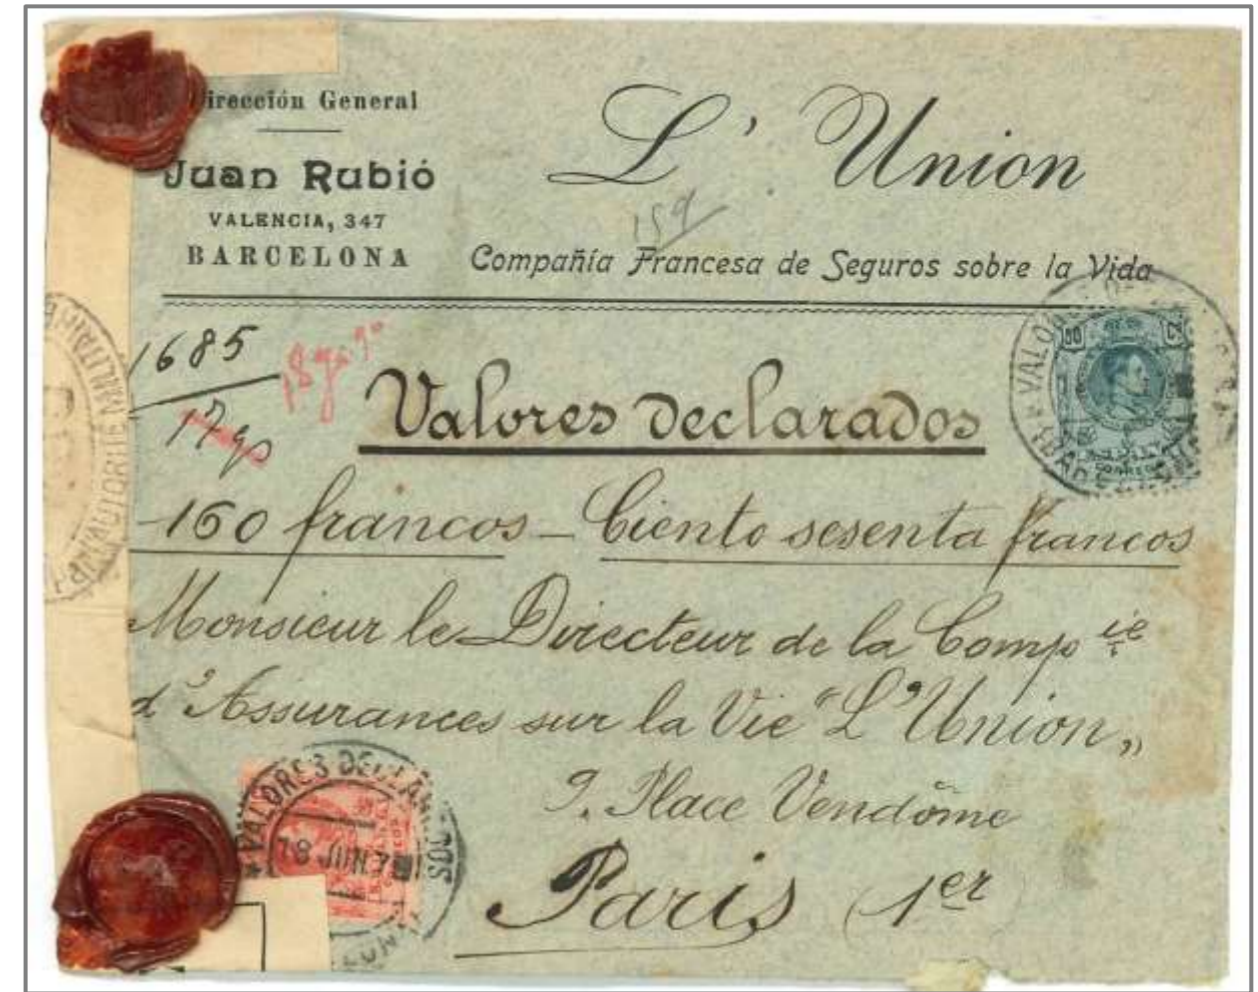 Dirección General
Juan Rubió
VALENCIA, 347
BARCELONA
L' Union
Compañía Francesa de Seguros sobre la Vida
1685
17 gs
Valores declarados
160 francos - Ciento sesenta francos
Monsieur le Directeur de la Comp ie
d'Assurances sur la Vie "L'Union„
9. Place Vendôme
Paris 1er
VALORES DECLARADOS
AUTORITÉ MILITAIRE
CORREOS